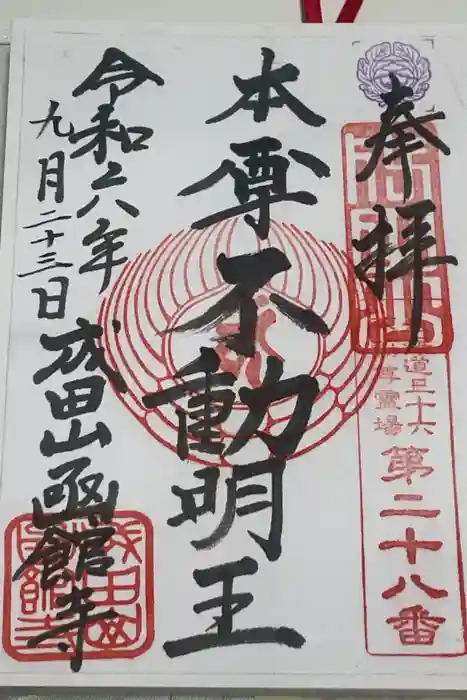 奉拝
道三十六
不動尊霊場
第二十八番
本尊不動明王
令和六年
九月二十三日
成田山函館寺